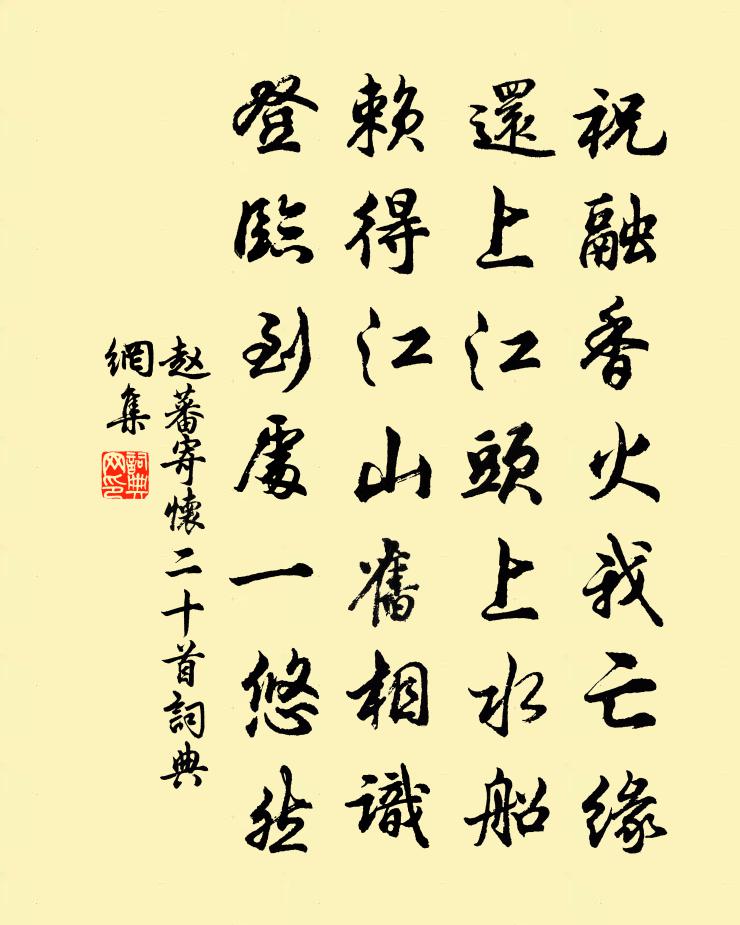 祝融香火我亡緣
還上江頭上水船
賴得江山舊相識
登臨到處一悠然
赵蕃寄懷二十首詞典
網集
詞典
网印